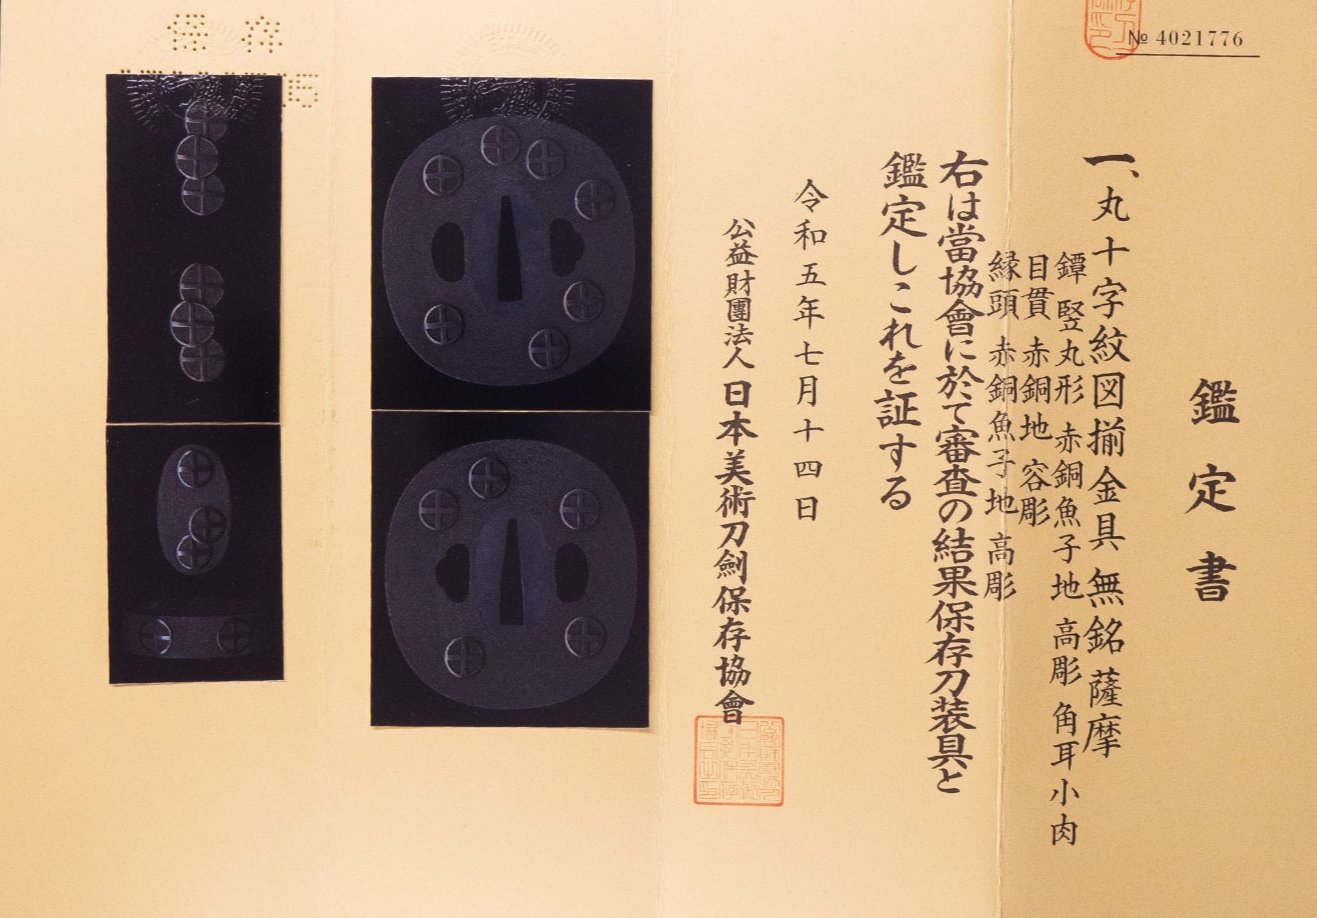 № 4021776
鑑定書
一、丸十字紋図揃金具 無銘 薩摩
鐔 竪丸形 赤銅魚子地 高彫 角耳小肉
目貫 赤銅地 容彫
縁頭 赤銅魚子地 高彫
右は當協會に於て審査の結果保存刀装具と
鑑定しこれを証する
令和五年七月十四日
公益財團法人 日本美術刀劍保存協會
保存